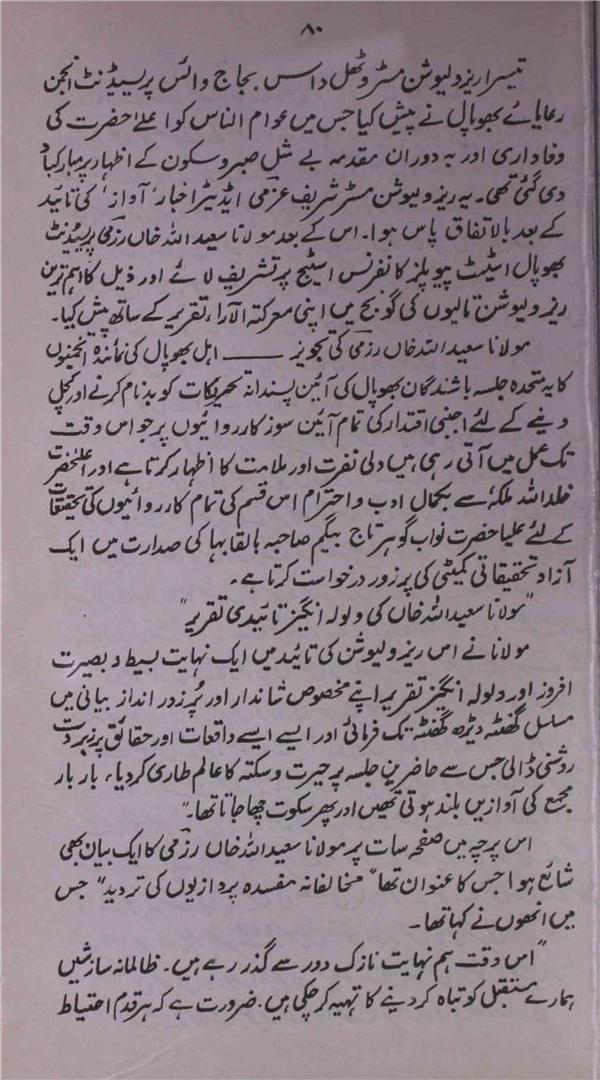 ۸۰
تیسرا ریزولیوشن مسٹر وٹھل داس بجاج وائس پریسیڈنٹ انجمن
رعایائے بھوپال نے پیش کیا جس میں عوام الناس کو اعلےٰ حضرت کی
وفاداری اور بہ دوران مقدمہ بے مثل صبر و سکون کے اظہار پر مبارکباد
دی گئی تھی۔ یہ ریزولیوشن مسٹر شریف عزمی ایڈیٹر اخبار "آواز" کی تائید
کے بعد بالاتفاق پاس ہوا۔ اس کے بعد مولانا سعید اللہ خاں رزمی پریسیڈنٹ
بھوپال اسٹیٹ پیوپلز کانفرنس اسٹیج پر تشریف لائے اور ذیل کا اہم ترین
ریزولیوشن تالیوں کی گونج میں اپنی معرکتہ الآراء تقریر کے ساتھ پیش کیا۔
مولانا سعید اللہ خاں رزمی کی تجویز ——— اہل بھوپال کی نمائندہ انجمنوں
کا یہ متحدہ جلسہ باشندگان بھوپال کی آئین پسندانہ تحریکات کو بدنام کرنے اور کچل
دینے کے لئے اجنبی اقتدار کی تمام آئین سوز کارروائیوں پر جو اس وقت
تک عمل میں آتی رہی ہیں دلی نفرت اور ملامت کا اظہار کرتا ہے اور اعلیٰحضرت
خلد اللہ ملکہٗ سے بکمال ادب و احترام اس قسم کی تمام کارروائیوں کی تحقیقات
کے لئے علیا حضرت نواب گوہر تاج بیگم صاحبہ بالقابہا کی صدارت میں ایک
آزاد تحقیقاتی کمیٹی کی پرزور درخواست کرتا ہے۔
"مولانا سعید اللہ خاں کی ولولہ انگیز تائیدی تقریر"
مولانا نے اس ریزولیوشن کی تائید میں ایک نہایت بسیط و بصیرت
افروز اور ولولہ انگیز تقریر اپنے مخصوص شاندار اور پُرزور انداز بیانی میں
مسلسل گھنٹہ ڈیڑھ گھنٹہ تک فرمائی اور ایسے ایسے واقعات اور حقائق پر زبردست
روشنی ڈالی جس سے حاضرین جلسہ پر حیرت و سکتہ کا عالم طاری کر دیا۔ بار بار
مجمع کی آوازیں بلند ہوتی تھیں اور پھر سکوت چھا جاتا تھا۔"
اس پرچہ میں صفحہ سات پر مولانا سعید اللہ خاں رزمی کا ایک بیان بھی
شائع ہوا جس کا عنوان تھا "مخالفانہ مفسدہ پردازیوں کی تردید" جس
میں انھوں نے کہا تھا۔
"اس وقت ہم نہایت نازک دور سے گذر رہے ہیں۔ ظالمانہ سازشیں
ہمارے مستقبل کو تباہ کر دینے کا تہیہ کر چکی ہیں۔ ضرورت ہے کہ ہر قدم احتیاط